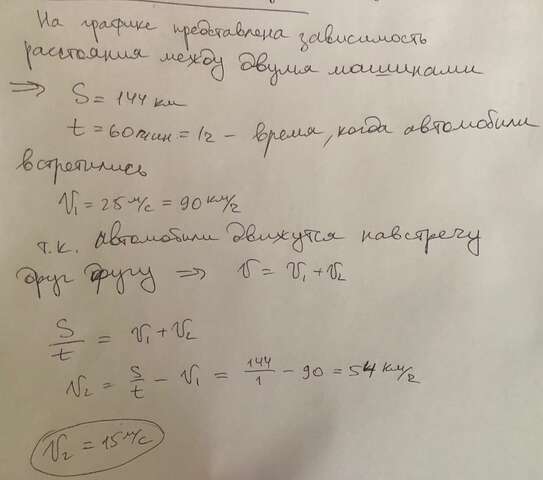 На графике представлена зависимость
расстояния между двумя машинами
=> S = 144 км
t = 60 мин = 1ч - время, когда автомобили
встретились
V₁ = 25 м/с = 90 км/ч
т.к. автомобили движутся навстречу
друг другу => V = V₁ + V₂
S/t = V₁ + V₂
V₂ = S/t - V₁ = 144/1 - 90 = 54 км/ч
V₂ = 15 м/с